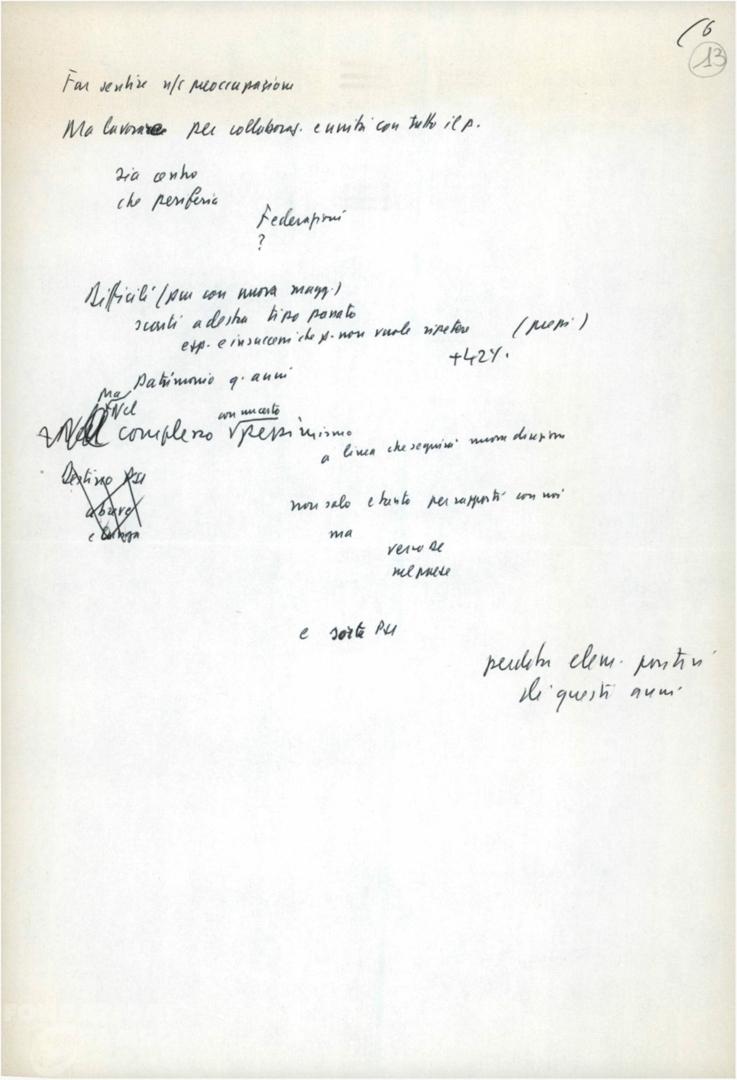 (6
13
Far sentire n/s preoccupazione
Ma lavorare per collaboraz. e unità con tutto il p.
sia centro
che periferia
Federazioni
?
Difficili (pur con nuova magg.)
sconti a destra tipo
esp. e insuccessi che p. non vuole ripetere
+42%.
Patrimonio q. anni
Ma
Nel
Nel complesso con un certo pessimismo
a linea che seguirà nuova direzione
Destino PSI
a breve
e lunga
non solo e tanto per rapporti con noi
ma
verso DC
nel paese
e sorte PSI
perdita elem. positivi
di questi anni